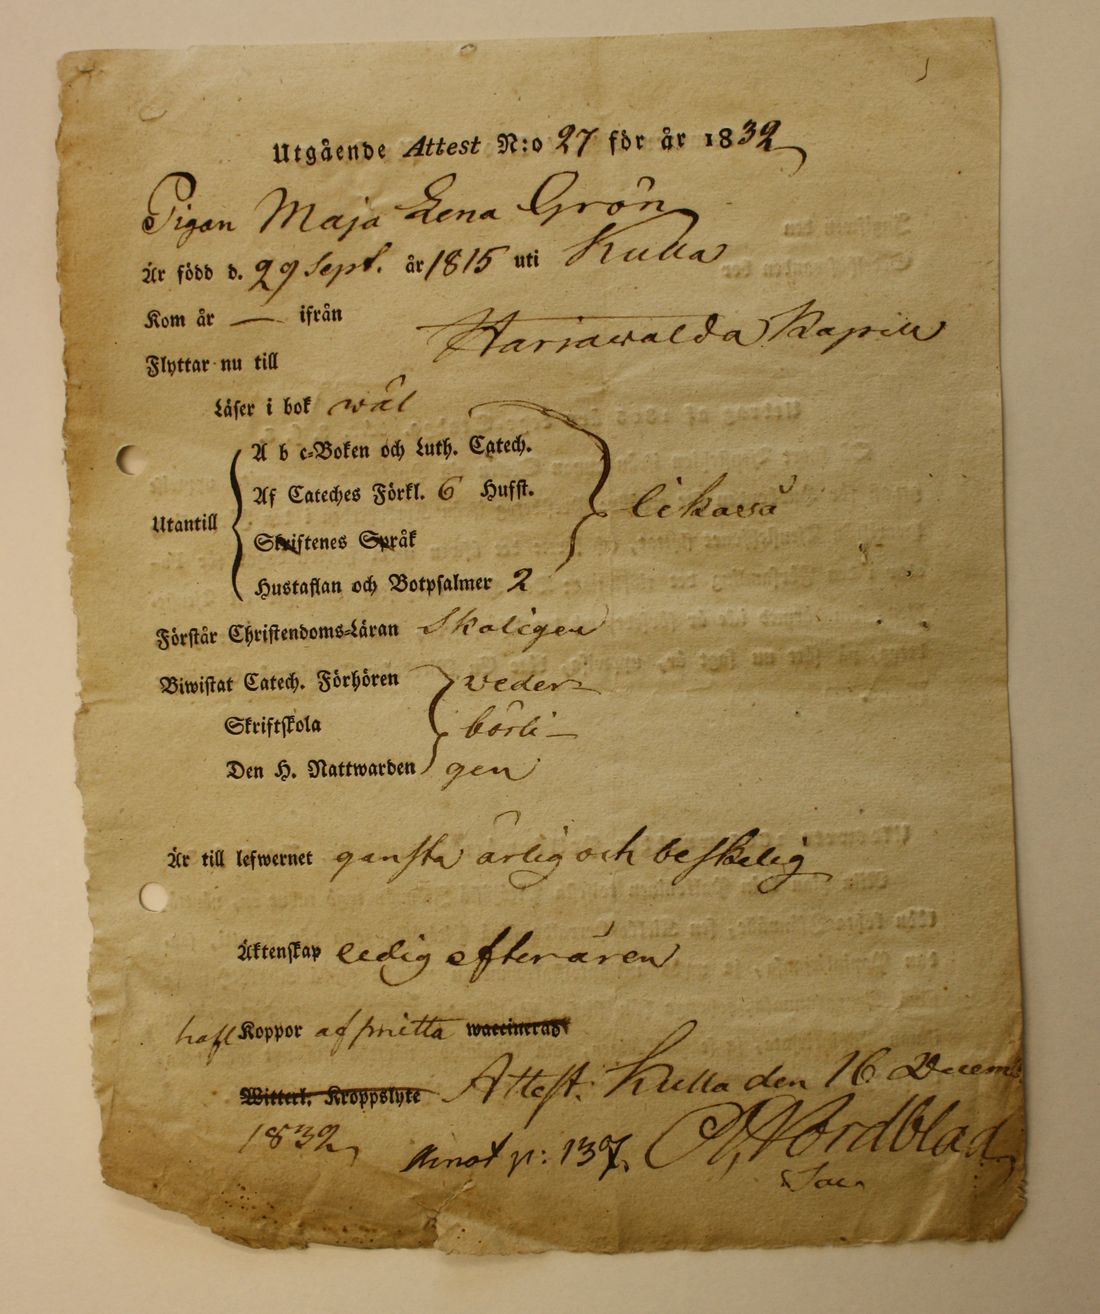 Utgående Attest N:o 27 för år 1832
Pigan Maja Lena Grön
Är född d. 29 Sept. år 1815 uti Kulla
Kom år — ifrån
Flyttar nu till Harjawalda Kapell
Läser i bok wäl
Utantill
A b c-Boken och Luth. Catech.
Af Cateches Förkl. 6 Hufst.
Skriftenes Språk
Hustaflan och Botpsalmer 2
likaså
Förstår Christendoms-Läran Skäligen
Biwistat Catech. Förhören weder-
Skriftskola börli-
Den H. Nattwarden gen
Är till lefwernet ganska ärlig och beskelig
Äktenskap ledig efter ären
haft Koppor af smitta waccinerad
Witterl. Kroppslyte Attest. Kulla den 16 Decemb
1832 p: 137. Nordblad